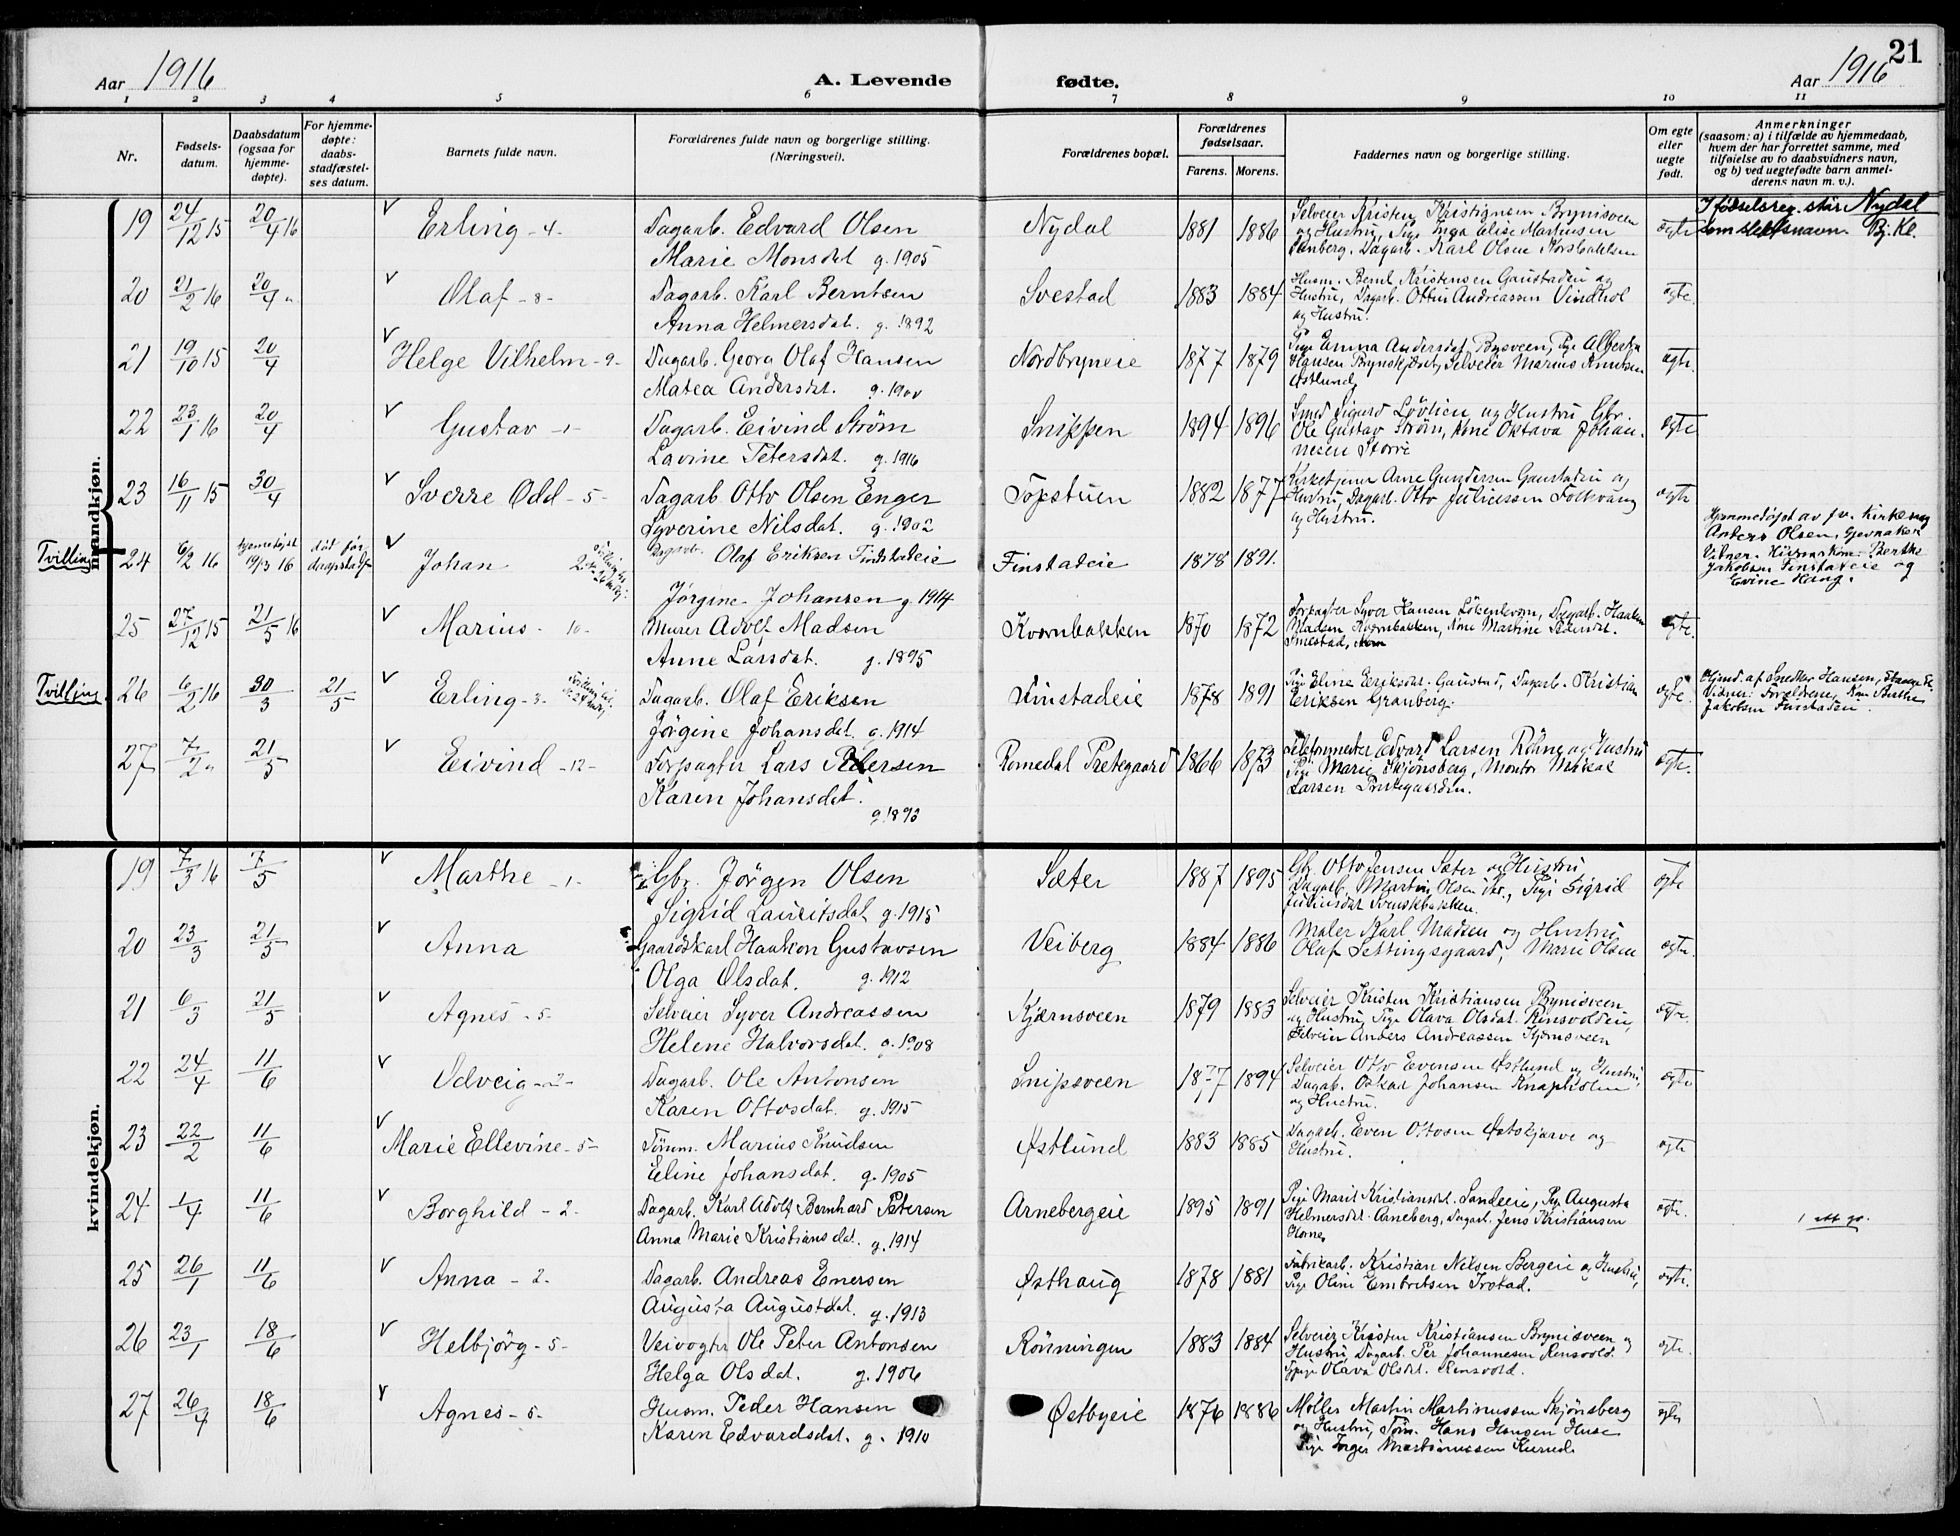 21
Aar 1916
A. Levende
fødte.
Aar 1916
1 2 3 4 5 6 7 8 9 10 11
Nr.
Fødsels-
datum.
Daabsdatum
(ogsaa for
hjemme-
døpte).
For hjemme-
døpte:
daabs-
stadfæstel-
ses datum.
Barnets fulde navn.
Forældrenes fulde navn og borgerlige stilling.
(Næringsvei).
Forældrenes bopæl.
Forældrenes
fødselsaar.
Farens. Morens.
Faddernes navn og borgerlige stilling.
Om egte
eller
uegte
født.
Anmerkninger
(saasom: a) i tilfælde av hjemmedaab,
hvem der har forrettet samme, med
tilføielse av to daabsvidners navn,
og b) ved uegtefødte barn anmel-
derens navn m. v.).
mandkjøn.
19 24/12 15 20/4 16 Erling - 4 - Dagarb. Edvard Olsen Nydal 1881 1886 Selveier Kristen Kristiansen Brynisveen egte I fødselsreg. står Nydal
Marie Monsdat g. 1905 og Hustru, Pige Inga Elise Martinsen som slektsnavn. Bj. Kl.
Dagarb. Karl Olsen
20 21/2 16 20/4 " Olaf - 8 - Dagarb. Karl Berntsen Svestad 1883 1884 Husm. Bernt Kristensen Gaustadeie og egte.
Anna Helmersdat. g. 1892 Hustru, Dagarb. Otto Andreassen Vindhol
og Hustru.
21 19/10 15 20/4 Helge Vilhelm - 9 - Dagarb. Georg Olaf Hansen Nordbryneie 1877 1879 Pige Emma Andersdat, Pige Alberta egte.
Matea Andersdat. g. 1900 Hansen Selveier Marius Knutsen
Østlund
22 23/1 16 20/4 Gustav - 1 - Dagarb. Eivind Strøm Snippen 1894 1896 Smed Sigurd Løvlien og Hustru Gbr. egte
Lavine Petersdat. g. 1916 Ole Gustav Strøm, Kone Oktava Johan-
nesen Storre
23 16/11 15 30/4 Sverre Odd - 5 - Dagarb. Otto Olsen Enger Topstuen 1882 1877 Kirketjener Arne Gundersen Gaustadeie og egte
Syverine Nilsdat. g. 1902 Hustru, Dagarb. Otto Juliussen Folkvang
og Hustru.
Tvilling 24 6/2 16 hjemmedøpt 19/3 16 død før daapsstadf. Johan Dagarb. Olaf Eriksen Finstadeie Finstadeie 1878 1891. Hjemmedøpt av fv. Kirkesang
Jørgine Johansen g. 1914 Anders Olsen, Gjevnaker
Vidner: Berthe
Jakobsen Finstadeie og
Evine Haug.
25 27/12 15 21/5 16 Marius - 10 - Murer Adolf Madsen Kvernbakken 1870 1872 Forpagter Syver Hansen Dagarb. Haaken egte.
Anne Larsdat. g. 1895 Madsen Kvernbakken, Kone Martine Pedersdat.
Smestad,
Tvilling. 26 6/2 16 30/3 21/5 Erling - 3 - Dagarb. Olaf Eriksen Finstadeie 1878 1891 Pige Eline Eriksdat. Gaustad, Dagarb. Kristian egte. Hjmd. af Snedker Hansen, Stange
Jørgine Johansdat. g. 1914 Eriksen Granberg. Vidner: Forældrene, Kone Berthe
Jakobsen Finstadeie.
27 7/2 " 21/5 Eivind - 12 - Forpagter Lars Pedersen Romedal Prestegaard 1866 1873 Telefonmester Edvard Larsen Røhne og Hustru egte.
Karen Johansdat. Pige Marie Skjønsberg, Montør Mikal
g. 1893 Larsen Prestegaarden.
kvindekjøn.
19 7/3 16 7/5 Marthe - 1 - Gbr. Jörgen Olsen Sæter 1887 1895 Gbr. Otto Jensen Sæter og Hustru egte
Sigrid Lauritsdat g. 1915 Dagarb. Martin Olsen Pige Sigrid
Juliusdat Svenskbakken.
20 23/3 21/5 Anna Gaardskarl Haakon Gustavsen Veiberg 1884 1886 Maler Karl Madsen og Hustru egte.
Olga Olsdat. g. 1912 Olaf Settingsgaard, Marie Olsen
21 6/3 21/5 Agnes - 5 - Selveier Syver Andreassen Kjærnsveen 1879 1883 Selveier Kristen Kristiansen Brynisveen egte.
Helene Halvorsdat. g. 1908 og Hustru, Pige Olava Olsdat. Rensvoldeie,
Selveier Anders Andreassen Kjernsveen
22 24/4 11/6 Solveig - 2 - Dagarb. Ole Antonsen Snipsveen 1877 1894 Selveier Otto Evensen Østlund og Hustru, egte
Karen Ottosdat. g. 1915 Dagarb. Oskar Johansen Knapholen
og Hustru.
23 22/2 11/6 Marie Ellevine - 5 - Tømm. Marius Knudsen Østlund 1883 1885 Dagarb. Even Ottosen Østskjærve og egte
Eline Johansdat. g. 1905 Hustru.
24 1/4 11/6 Borghild - 2 - Dagarb. Karl Adolf Bernhard Petersen Arnebergeie 1895 1891 Pige Marit Kristiansdat. Sandeeie, Pige Augusta egte. 1 att. gr.
Anna Marie Kristiansdat. g. 1914 Helmersdat. Arneberg, Dagarb. Jens Kristiansen
Horne
25 26/1 11/6 Anna - 2. Dagarb. Andreas Enersen Østhaug 1878 1881 Fabrikarb. Kristian Nilsen Bergeie og Hustru, egte.
Augusta Augustdat. g. 1913 Pige Oline Embretsen Frostad.
26 23/1 18/6 Helbjørg - 5 - Veivogter Ole Peter Antonsen Rönningen 1883 1884 Selveier Kristen Kristiansen Brynisveen og egte.
Helga Olsdat. g. 1906 Hustru, Dagarb. Per Johannesen Rensvold.
Pige Olava Olsdat. Rensvold.
27 26/4 18/6 Agnes - 5 - Husm. Peder Hansen Østbyeie 1876 1886 Møller Martin Martinussen Skjønsberg egte
Karen Edvardsdat. g. 1910 og Hustru, Tøm. Hans Hansen Huse
Pige Inger Martinussen Kurud.